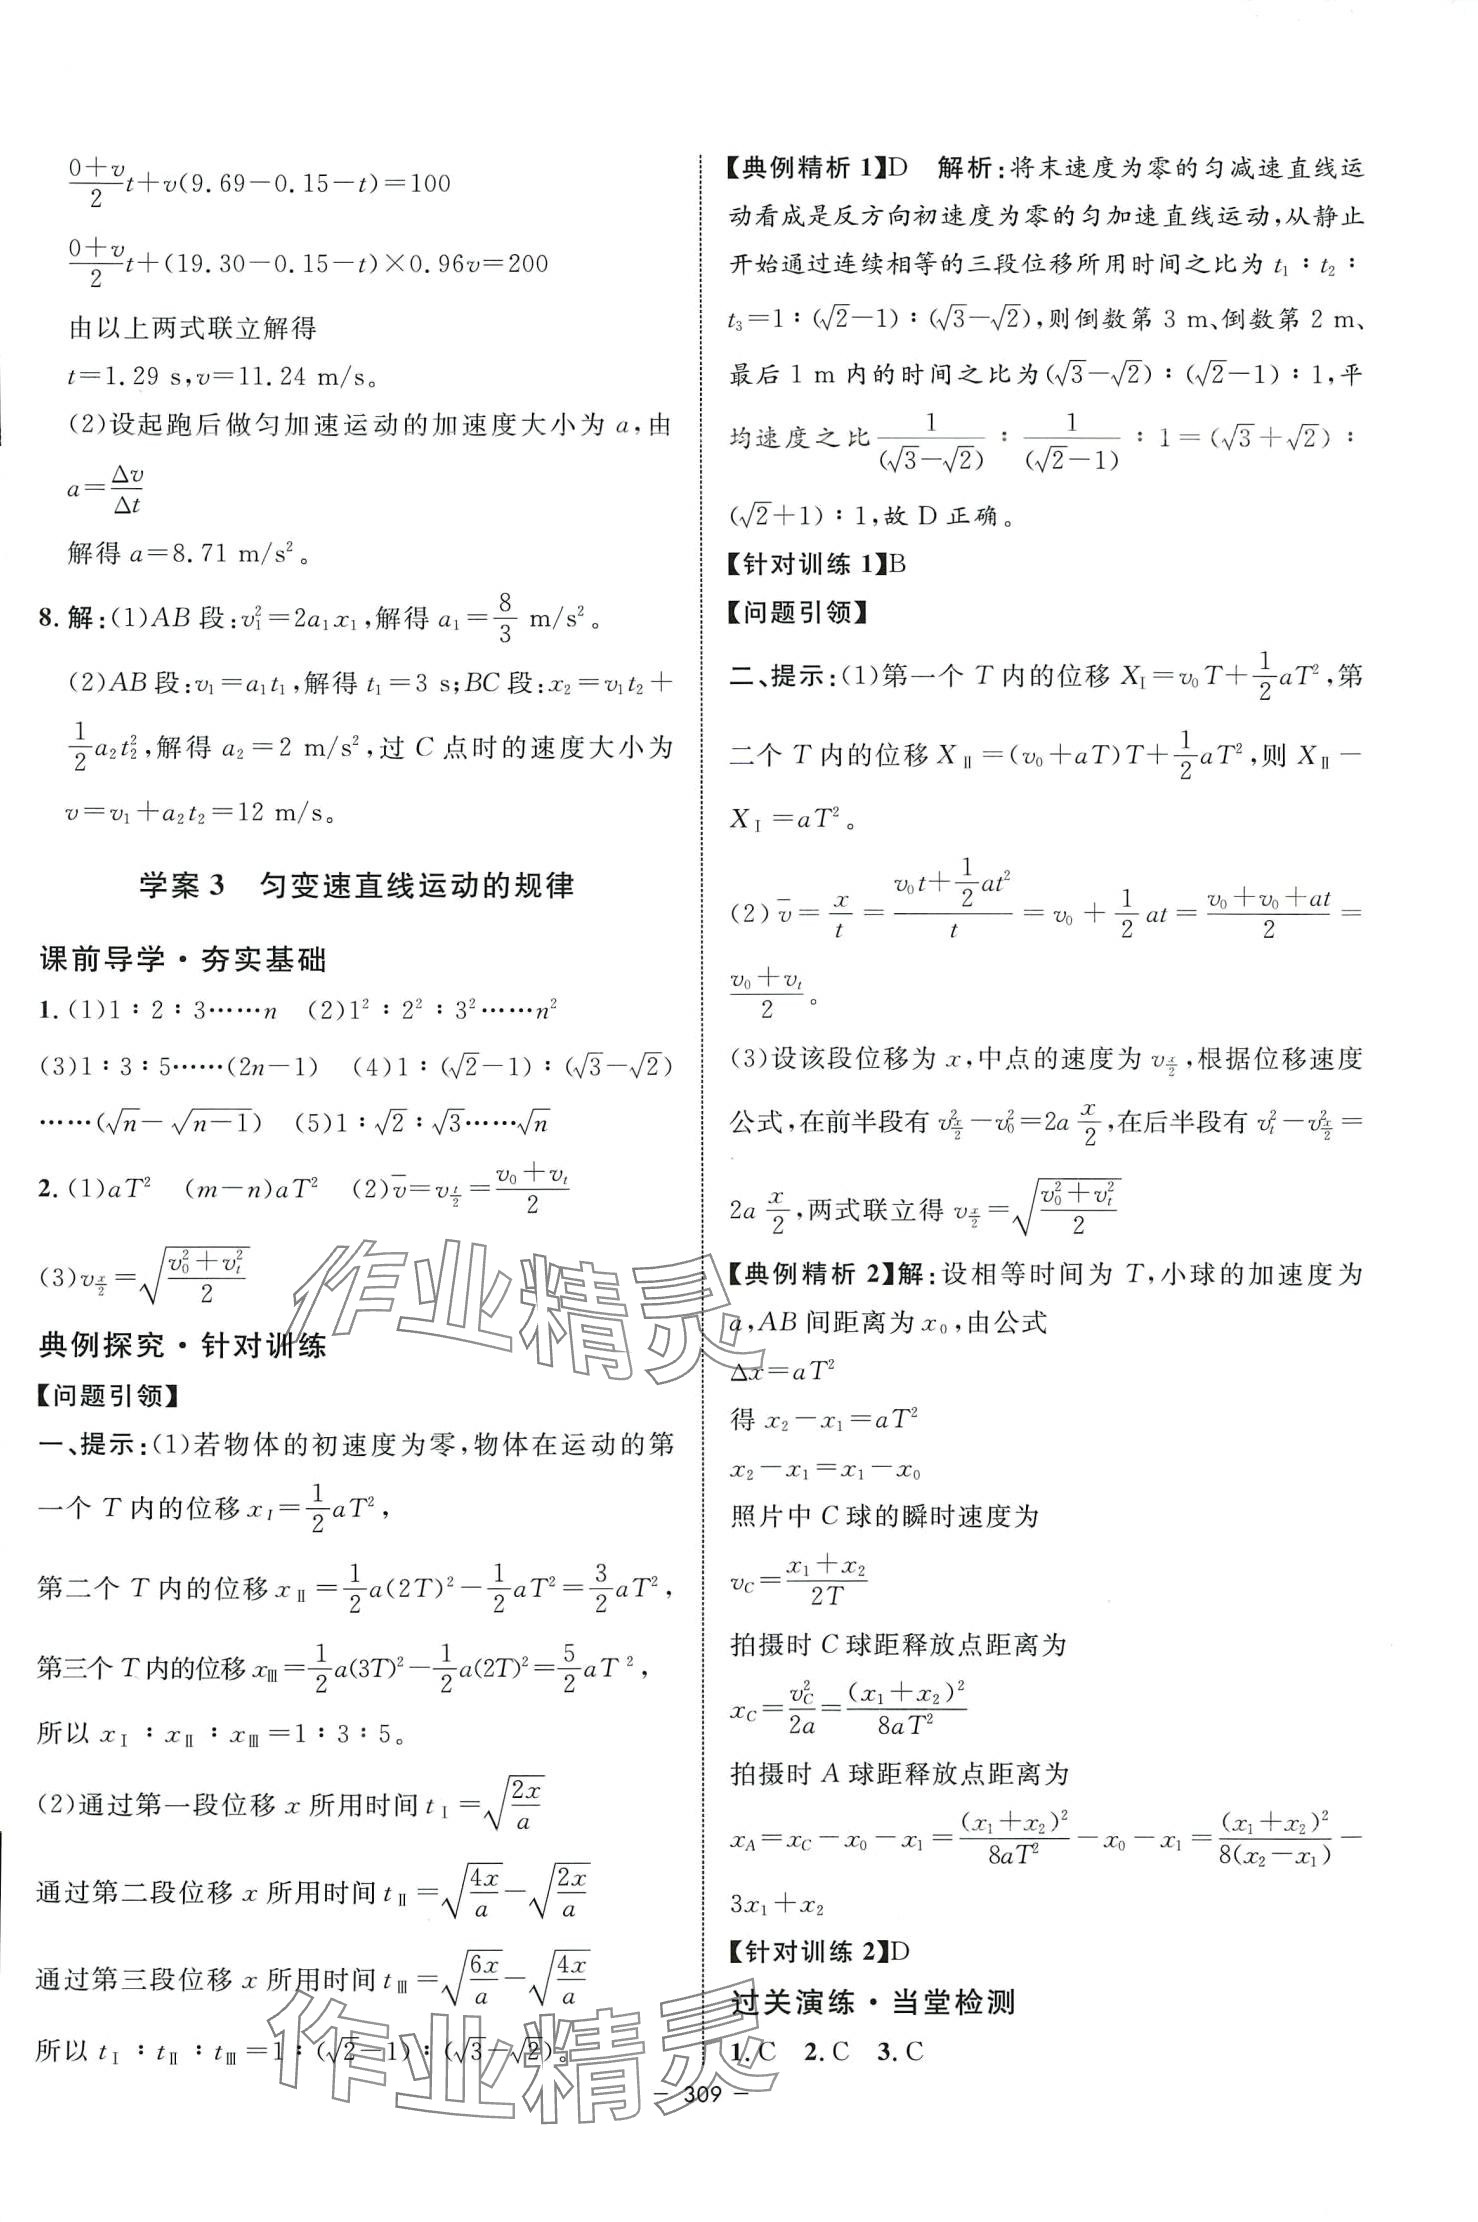 0+v/2 t+v(9.69-0.15-t)=100
0+v/2 t+(19.30-0.15-t)×0.96v=200
由以上两式联立解得
t=1.29 s,v=11.24 m/s。
(2)设起跑后做匀加速运动的加速度大小为 a,由
a=Δv/Δt
解得 a=8.71 m/s²。
8.解:(1)AB 段:v₁²=2a₁x₁,解得 a₁=8/3 m/s²。
(2)AB 段:v₁=a₁t₁,解得 t₁=3 s;BC 段:x₂=v₁t₂+
1/2 a₂t₂²,解得 a₂=2 m/s²,过 C 点时的速度大小为
v=v₁+a₂t₂=12 m/s。
学案 3 匀变速直线运动的规律
课前导学·夯实基础
1.(1)1∶2∶3……n (2)1²∶2²∶3²……n²
(3)1∶3∶5……(2n-1) (4)1∶(√2-1)∶(√3-√2)
……(√n-√(n-1)) (5)1∶√2∶√3……√n
2.(1)aT² (m-n)aT² (2)v̄=v_{t/2}=(v₀+v_t)/2
(3)v_{x/2}=√((v₀²+v_t²)/2)
典例探究·针对训练
【问题引领】
一、提示:(1)若物体的初速度为零,物体在运动的第
一个 T 内的位移 x_I=1/2 aT²,
第二个 T 内的位移 x_Ⅱ=1/2 a(2T)²-1/2 aT²=3/2 aT²,
第三个 T 内的位移 x_Ⅲ=1/2 a(3T)²-1/2 a(2T)²=5/2 aT²,
所以 x_Ⅰ∶x_Ⅱ∶x_Ⅲ=1∶3∶5。
(2)通过第一段位移 x 所用时间 t_Ⅰ=√(2x/a)
通过第二段位移 x 所用时间 t_Ⅱ=√(4x/a)-√(2x/a)
通过第三段位移 x 所用时间 t_Ⅲ=√(6x/a)-√(4x/a)
所以 t_Ⅰ∶t_Ⅱ∶t_Ⅲ=1∶(√2-1)∶(√3-√2)。
【典例精析 1】D 解析:将末速度为零的匀减速直线运
动看成是反方向初速度为零的匀加速直线运动,从静止
开始通过连续相等的三段位移所用时间之比为 t₁∶t₂∶
t₃=1∶(√2-1)∶(√3-√2),则倒数第 3 m、倒数第 2 m、
最后 1 m 内的时间之比为(√3-√2)∶(√2-1)∶1,平
均速度之比 1/(√3-√2)∶1/(√2-1)∶1=(√3+√2)∶
(√2+1)∶1,故 D 正确。
【针对训练 1】B
【问题引领】
二、提示:(1)第一个 T 内的位移 X_Ⅰ=v₀T+1/2 aT²,第
二个 T 内的位移 X_Ⅱ=(v₀+aT)T+1/2 aT²,则 X_Ⅱ-
X_Ⅰ=aT²。
(2)v̄=x/t=(v₀t+1/2 at²)/t=v₀+1/2 at=(v₀+v₀+at)/2=
(v₀+v_t)/2。
(3)设该段位移为 x,中点的速度为 v_{x/2},根据位移速度
公式,在前半段有 v²_{x/2}-v₀²=2a x/2,在后半段有 v_t²-v²_{x/2}=
2a x/2,两式联立得 v_{x/2}=√((v₀²+v_t²)/2)
【典例精析 2】解:设相等时间为 T,小球的加速度为
a,AB 间距离为 x₀,由公式
Δx=aT²
得 x₂-x₁=aT²
x₂-x₁=x₁-x₀
照片中 C 球的瞬时速度为
v_C=(x₁+x₂)/2T
拍摄时 C 球距释放点距离为
x_C=v_C²/2a=(x₁+x₂)²/8aT²
拍摄时 A 球距释放点距离为
x_A=x_C-x₀-x₁=(x₁+x₂)²/8aT²-x₀-x₁=(x₁+x₂)²/8(x₂-x₁)-
3x₁+x₂
【针对训练 2】D
过关演练·当堂检测
1.C 2.C 3.C
- 309 -
作业精灵
作业精灵